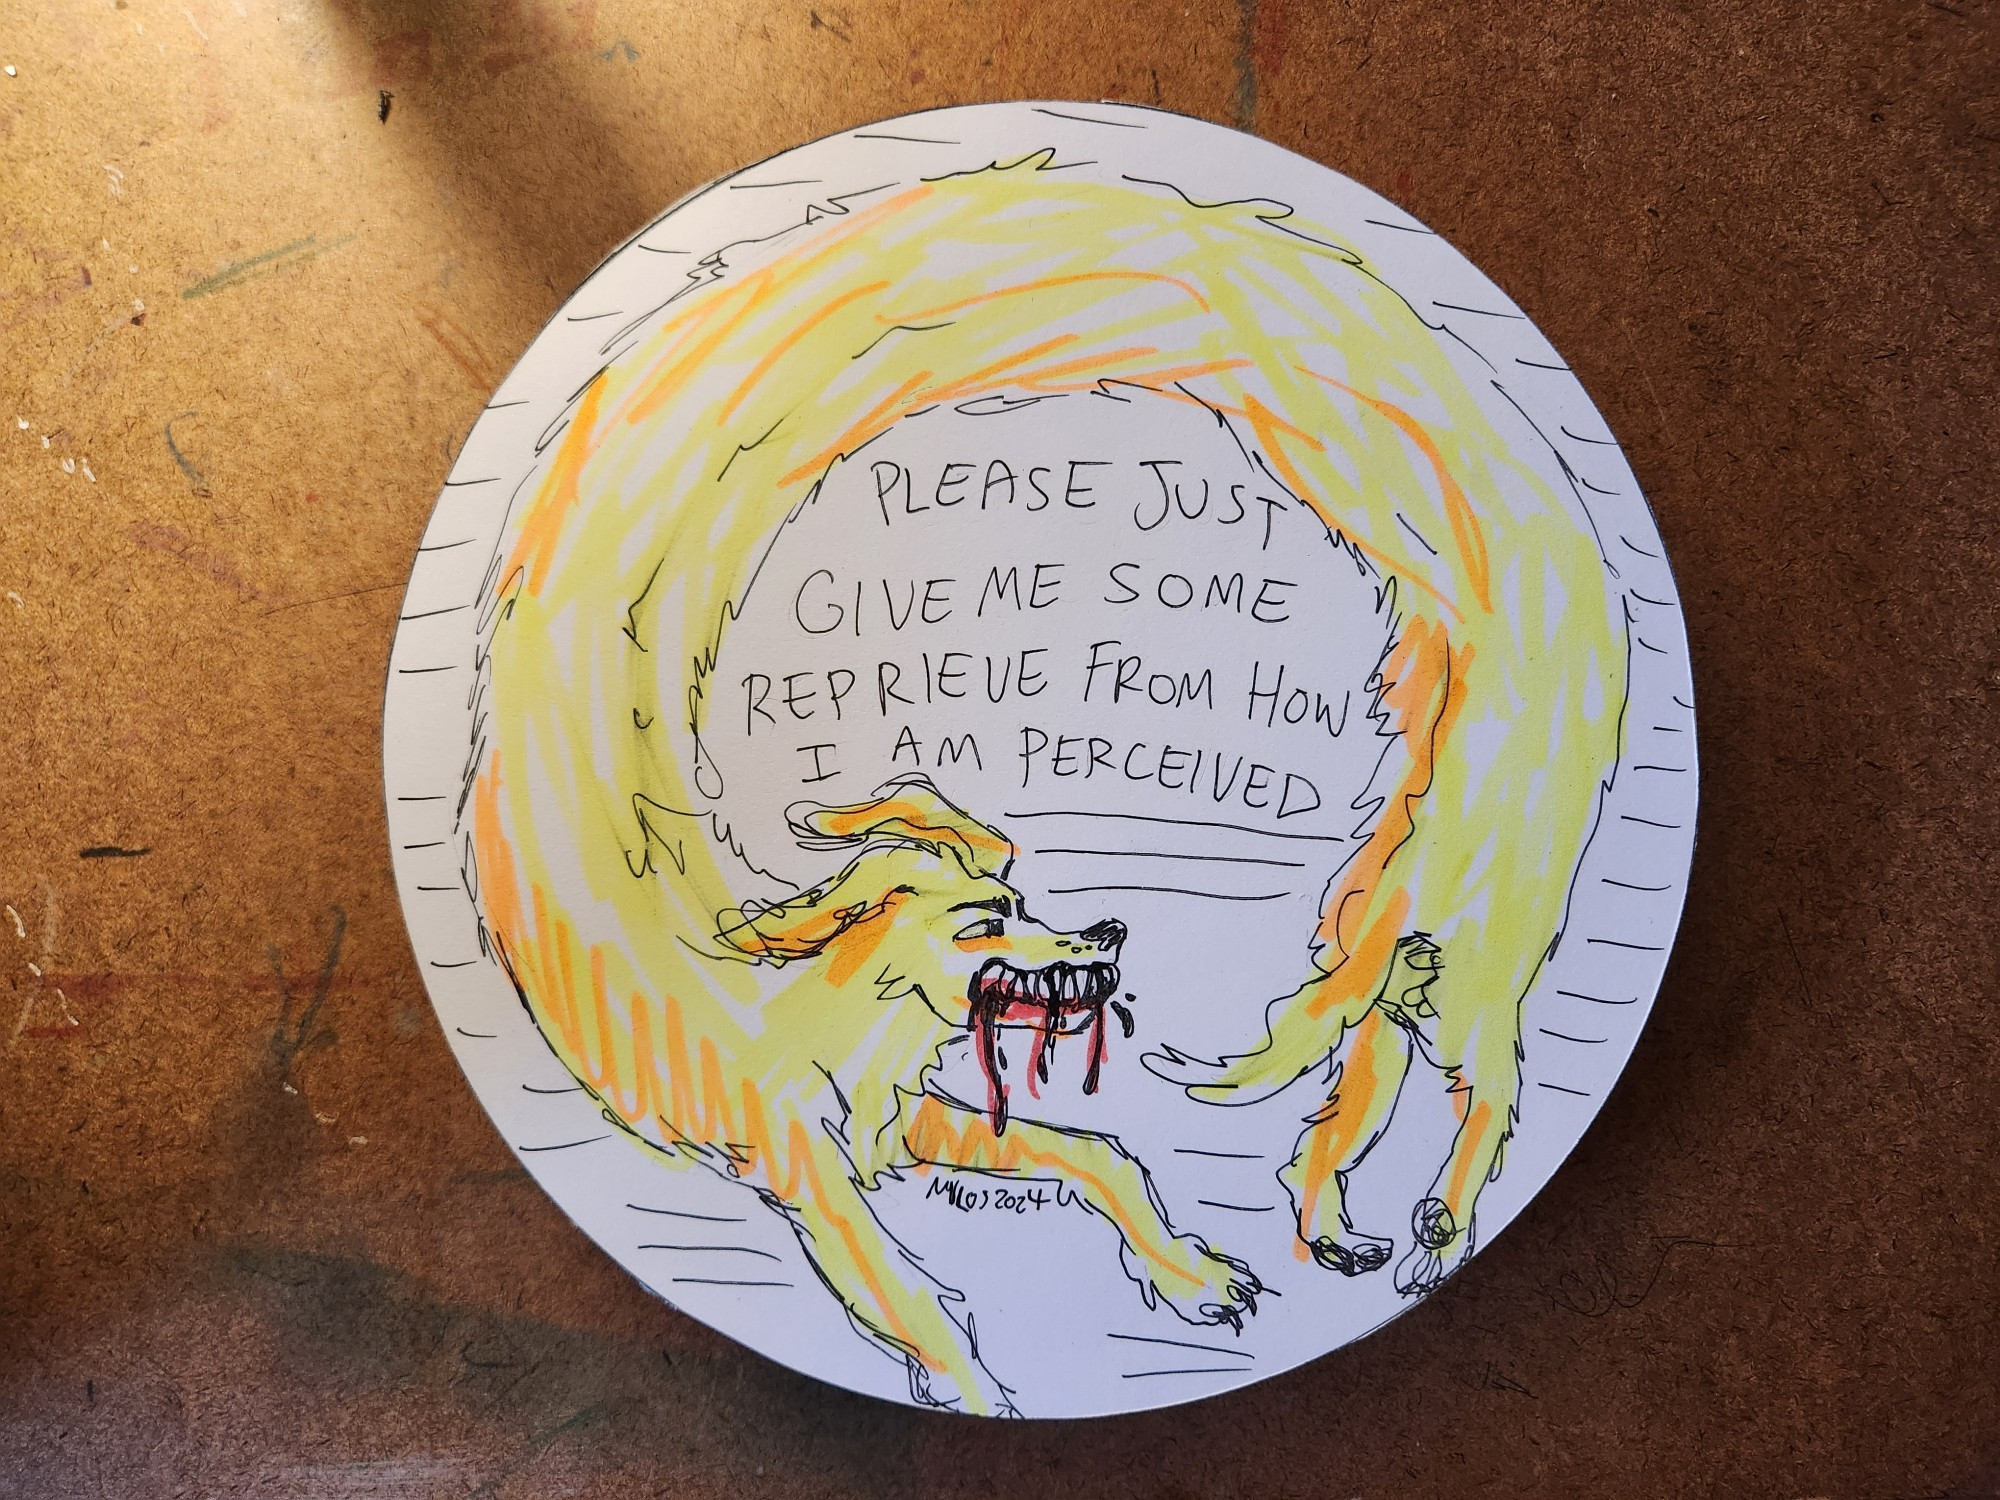 PLEASE JUST
GIVE ME SOME
REPRIEVE FROM HOW
I AM PERCEIVED
MILOS 2024